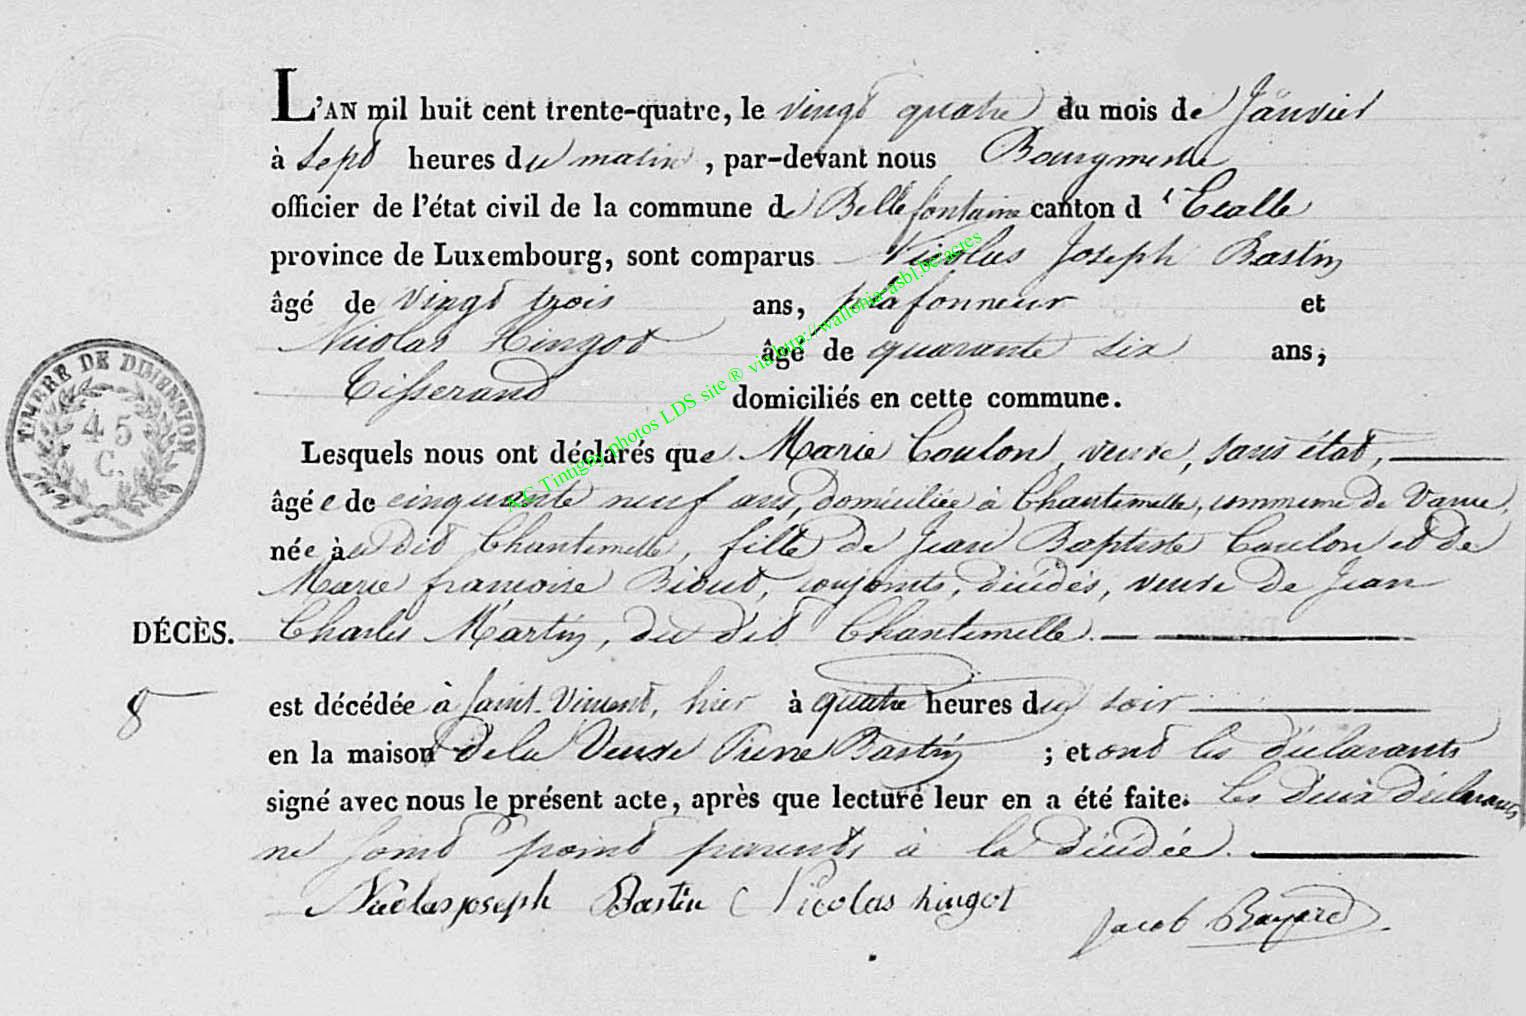 L'AN mil huit cent trente-quatre, le vingt quatre du mois de Janvier
à Sept heures du matin, par-devant nous Bourgmestre
officier de l'état civil de la commune de Bellefontaine canton d'Etalle
province de Luxembourg, sont comparus Nicolas Joseph Bastin
âgé de vingt trois ans, plafonneur et
Nicolas Hingot âgé de quarante six ans,
Tisserand domiciliés en cette commune.
Lesquels nous ont déclarés que Marie Coulon, veuve, sans état,
âgée de cinquante neuf ans, domiciliée à Chantemelle, commune de Vance,
née àu dit Chantemelle, fille de Jean Baptiste Coulon et de
Marie françoise conjoints, décédés, veuve de Jean
DÉCÈS. Charles Martin, du dit Chantemelle.
8 est décédée à Saint-Vincent, hier à quatre heures du soir
en la maison de la Veuve Pierre Bastin ; et ont les déclarants
signé avec nous le présent acte, après que lecture leur en a été faite. les deux déclarants
ne sont point parents à la décédée.
Nicolas joseph Bastin Nicolas hingot
Jacob Bayard
TIMBRE DE DIMENSION
45
C.
A.C Tintigny photos LDS site ® via http://wallonia-asbl.be-actes